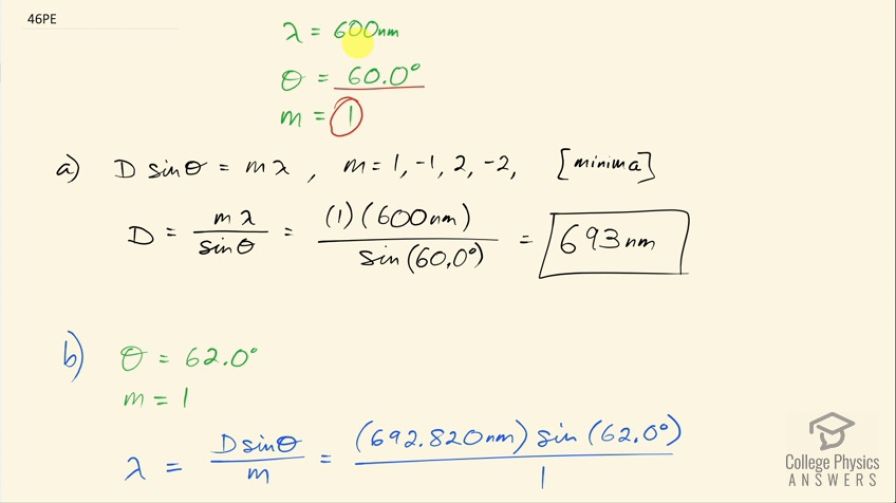 46PE
λ = 600nm
θ = 60.0°
m = 1
a) D sinθ = mλ , m = 1, -1, 2, -2, [minima]
D = mλ / sinθ = (1)(600nm) / sin(60.0°) = 693nm
b) θ = 62.0°
m = 1
λ = D sinθ / m = (692.820nm) sin(62.0°) / 1
College Physics
ANSWERS